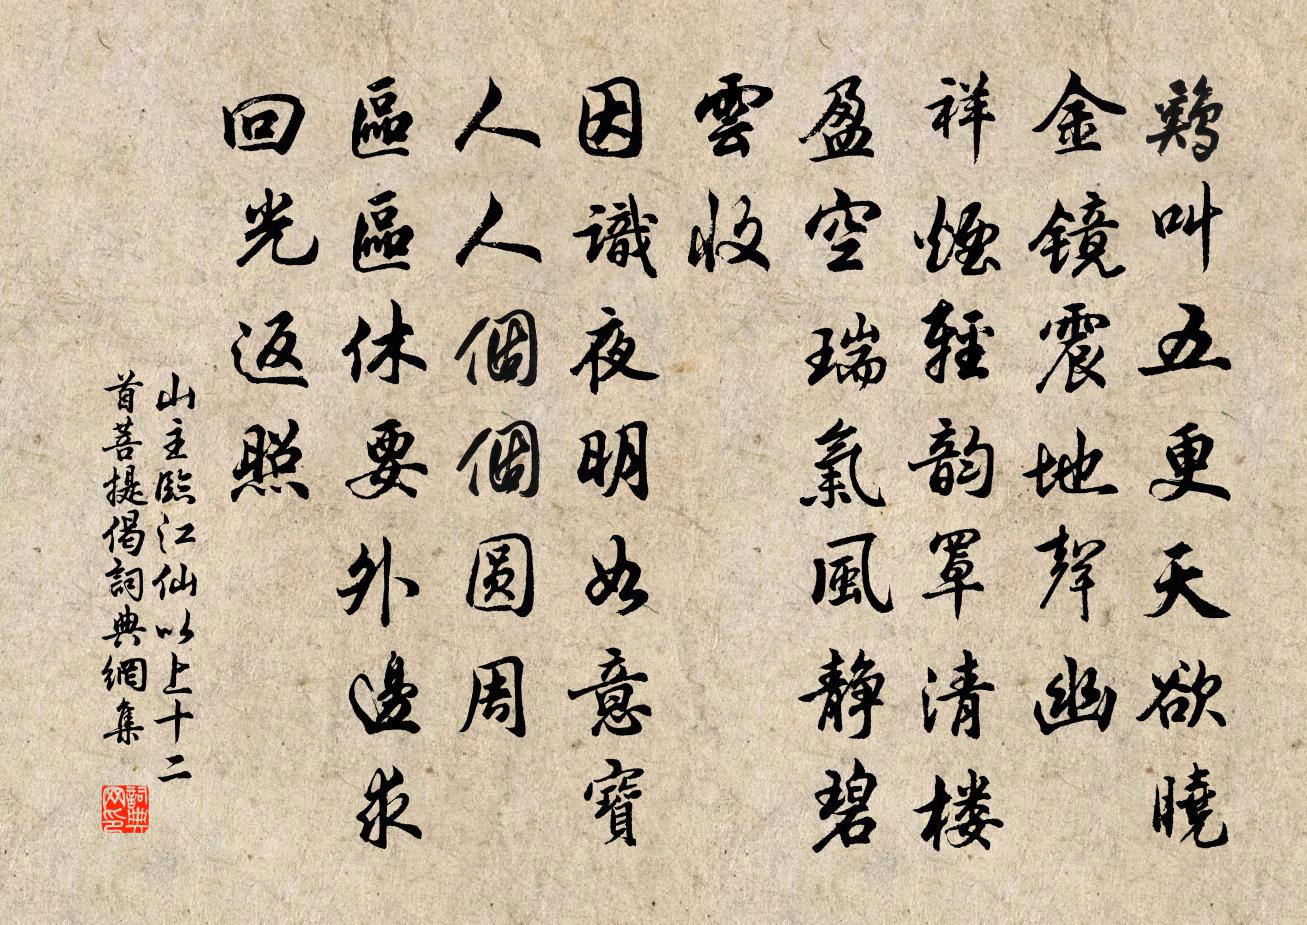 鷄叫五更天欲曉
金鏡震地聲幽
祥煙輕韵罩清楼
盈空瑞氣風静碧
雲收
因識夜明如意寶
人人個個圆周
區區休要外邊求
回光返照
山主臨江仙以上十二
首菩提偈詞典網集
詞典
网印